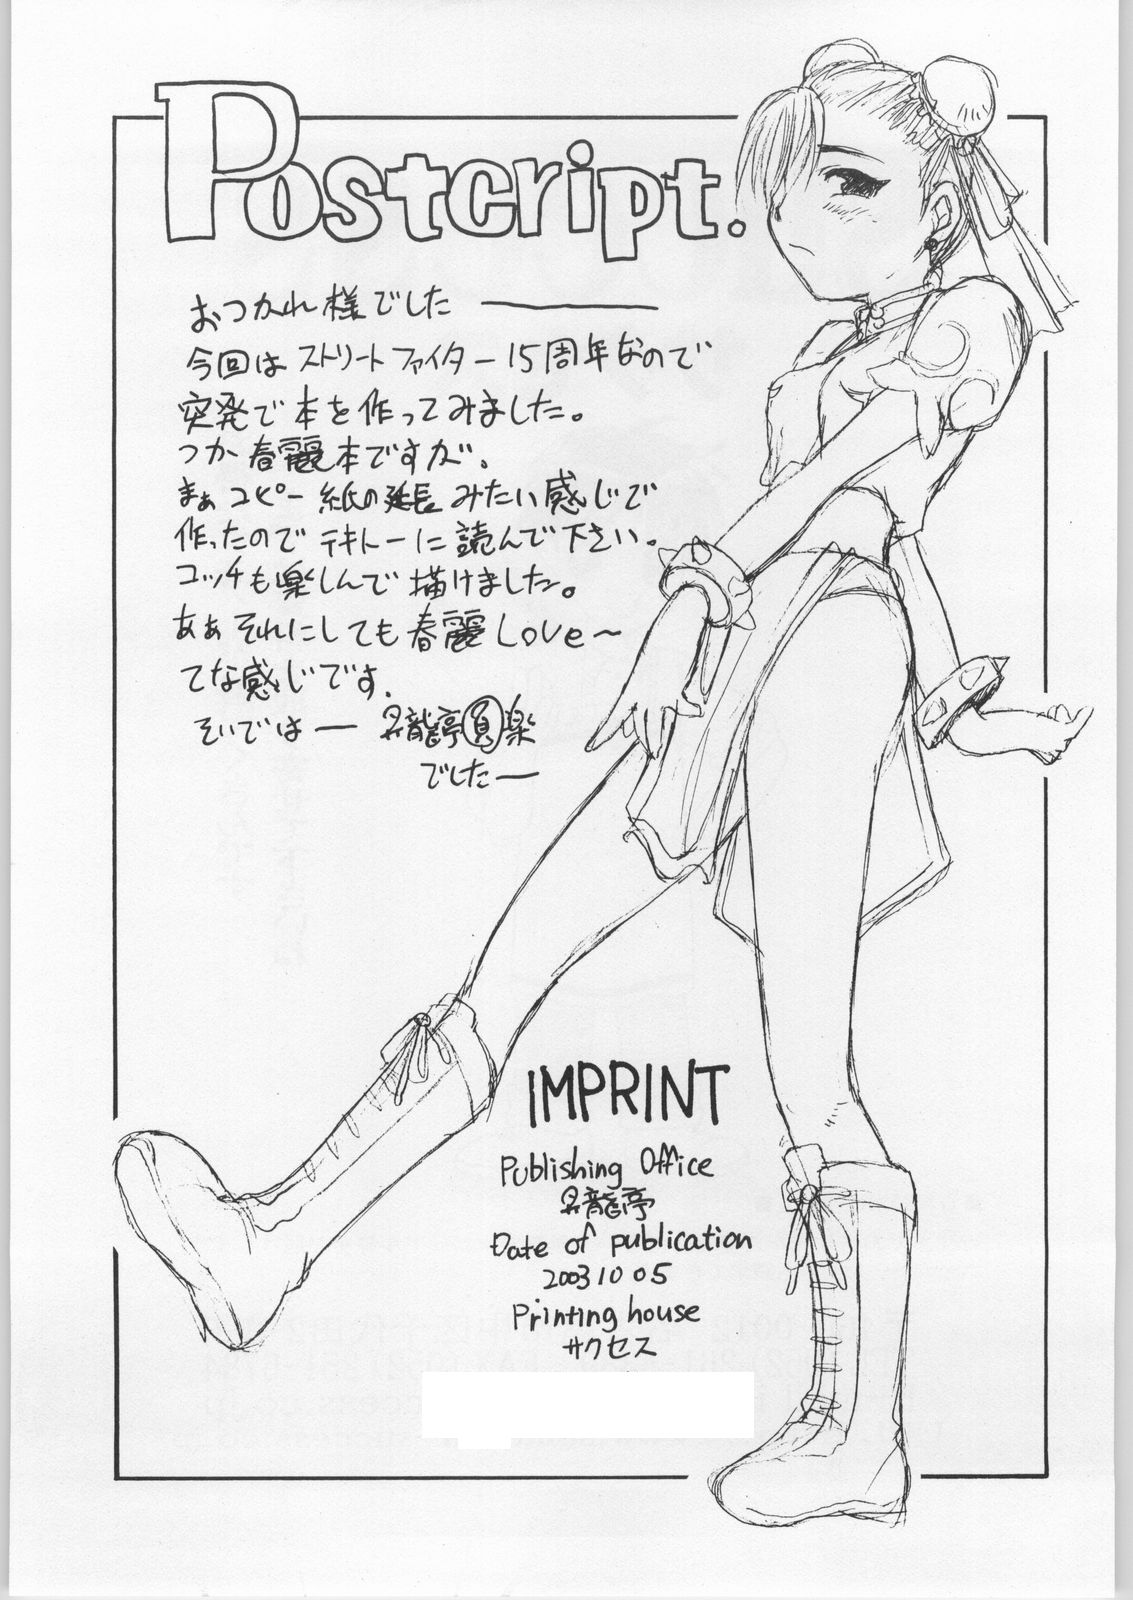 Postcript.
おつかれ様でした ―――
今回は ストリートファイター 15周年なので
突発で 本を 作ってみました。
つか 春麗本ですが、
まぁ コピー 紙の延長 みたい感じで
作ったので テキトーに 読んで下さい。
コッチも楽しんで 描けました。
あぁ それにしても 春麗 Love～
てな感じです.
そいでは― 昇龍亭 楽
でした―
IMPRINT
Publishing Office
昇龍亭
Date of publication
2003 10 05
Printing house
サクセス